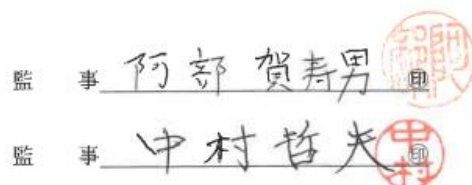 監 事 阿部 賀寿男 ㊞
監 事 中村哲夫 ㊞
中村